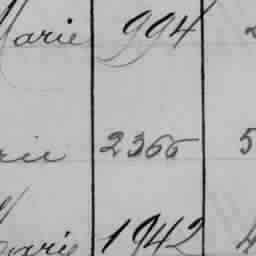 Marie 994 2
rie 2366 5
Marie 1942 4